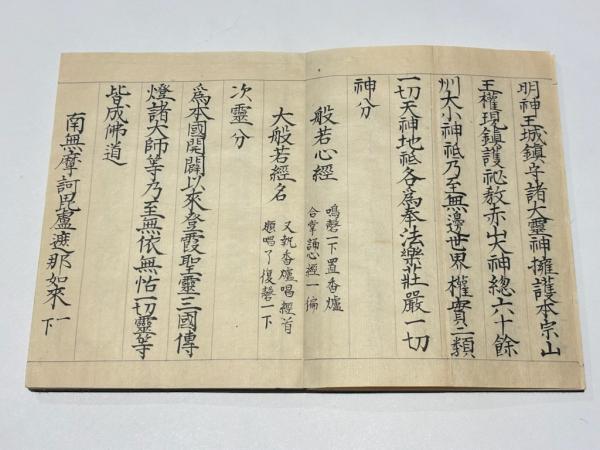 明神王城鎮守諸大靈神擁護本宗山
王權現鎮護祕教赤山大神總六十餘
州大小神祇乃至無邊世界權實二類
一切天神地祇各爲奉法樂莊嚴一切
神分
般若心經
鳴磬一下置香爐
合掌誦心經一徧
大般若經名
又執香爐唱經首
題唱了復磬一下
次靈分
爲本國開闢以來登霞聖靈三國傳
燈諸大師等乃至無依無怙一切靈等
皆成佛道
南無摩訶毘盧遮那如來一下